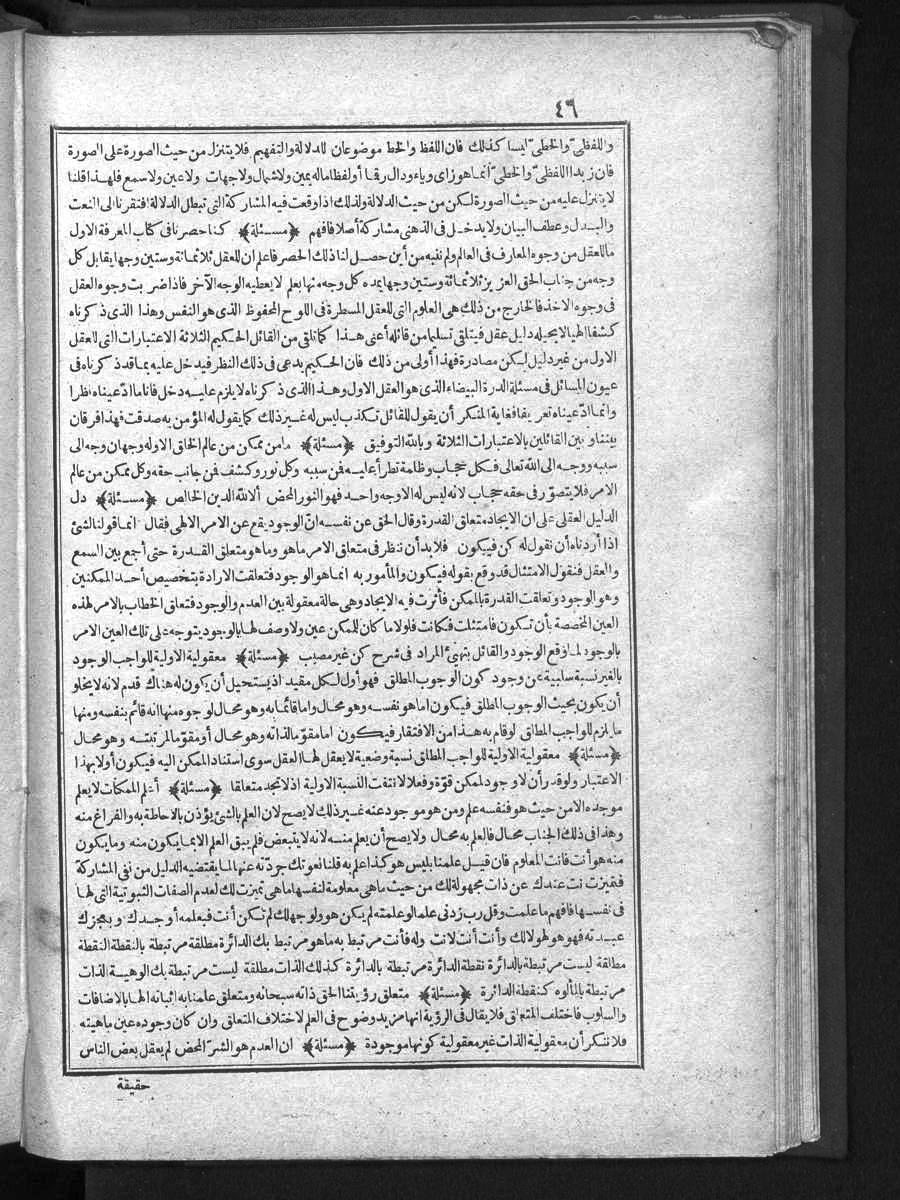 ٤٦
واللفظى والخطى ليسا كذلك فان اللفظ والخط موضوعان للدلالة والتفهيم فلا يتنزل من حيث الصورة على الصورة
فان زيدا اللفظى والخطى انما هو زاى وياء ودال رقما أو لفظا ماله يمين ولا شمال ولا جهات ولا عين ولا سمع فلهذا قلنا
لا يتنزل عليه من حيث الصورة لكن من حيث الدلالة ولذلك اذا وقعت فيه المشاركة التى تبطل الدلالة افتقرنا الى النعت
والبدل وعطف البيان ولا يدخل فى الذهنى مشاركة أصلا فافهم ﴿مسئلة﴾ كنا حصرنا فى كتاب المعرفة الاول
ما للعقل من وجوه المعارف فى العالم ولم ننبه من أين حصل لنا ذلك الحصر فاعلم ان للعقل ثلاثمائة وستين وجها يقابل كل
وجه من جناب الحق العزيز ثلاثمائة وستين وجها يمده كل وجه منها بعلم لا يعطيه الوجه الآخر فاذا ضربت وجوه العقل
فى وجوه الاخذ فالخارج من ذلك هى العلوم التى للعقل المسطرة فى اللوح المحفوظ الذى هو النفس وهذا الذى ذكرناه
كشفا الهيا لا يحيله دليل عقل فيتلقى تسليما من قائله أعنى هذا كما تلقى من القائل الحكيم الثلاثة الاعتبارات التى للعقل
الاول من غير دليل لكن مصادرة فهذا أولى من ذلك فان الحكيم يدعى فى ذلك النظر فيدخل عليه بما قد ذكرناه فى
عيون المسائل فى مسئلة الدرة البيضاء الذى هو العقل الاول وهذا الذى ذكرناه لا يلزم عليه دخل فانا ما ادعيناه نظرا
وانما ادعيناه تعريفا فغاية المنكر أن يقول للقائل تكذب ليس له غير ذلك كما يقول له المؤمن به صدقت فهذا فرقان
بيننا وبين القائلين بالاعتبارات الثلاثة وبالله التوفيق ﴿مسئلة﴾ ما من ممكن من عالم الخلق الا وله وجهان وجه الى
سببه ووجه الى الله تعالى فكل حجاب وظلمة تطرأ عليه فمن سببه وكل نور وكشف فمن جانب حقه وكل ممكن من عالم
الامر فلا يتصور فى حقه حجاب لانه ليس له الا وجه واحد فهو النور المحض ألا لله الدين الخالص ﴿مسئلة﴾ دل
الدليل العقلى على ان الايجاد متعلق القدرة وقال الحق عن نفسه ان الوجود يقع عن الامر الالهى فقال انما قولنا لشئ
اذا أردناه أن نقول له كن فيكون فلا بد أن ننظر فى متعلق الامر ما هو وما هو متعلق القدرة حتى أجمع بين السمع
والعقل فنقول الامتثال قد وقع بقوله فيكون والمأمور به انما هو الوجود فتعلقت الارادة بتخصيص أحد الممكنين
وهو الوجود وتعلقت القدرة بالممكن فأثرت فيه الايجاد وهى حالة معقولة بين العدم والوجود فتعلق الخطاب بالامر لهذه
العين المخصصة بأن تكون فامتثلت فكانت فلولا ما كان للممكن عين ولا وصف لها بالوجود يتوجه على تلك العين الامر
بالوجود لما وقع الوجود والقائل بتهيئ المراد فى شرح كن غير مصيب ﴿مسئلة﴾ معقولية الاولية للواجب الوجود
بالغير نسبة سلبية عن وجود كون الوجوب المطلق فهو أول لكل مقيد اذ يستحيل أن يكون له هناك قدم لانه لا يخلو
أن يكون بحيث الوجوب المطلق فيكون اما هو نفسه وهو محال واما قائما به وهو محال لوجوه منها انه قائم بنفسه ومنها
ما يلزم للواجب المطلق لو قام به هذا من الافتقار فيكون اما مقوما لذاته وهو محال أو مقوما لمرتبته وهو محال
﴿مسئلة﴾ معقولية الاولية للواجب المطلق نسبة وضعية لا يعقل لها العقل سوى استناد الممكن اليه فيكون أولا بهذا
الاعتبار ولو قدر أن لا وجود لممكن قوة وفعلا لانتفت النسبة الاولية اذ لا تجد متعلقا ﴿مسئلة﴾ أعلم الممكنات لا يعلم
موجده الا من حيث هو فنفسه علم ومن هو موجود عنه غير ذلك لا يصح لان العلم بالشئ يؤذن بالاحاطة به والفراغ منه
وهذا فى ذلك الجناب محال فالعلم به محال ولا يصح أن يعلم منه لانه لا يتبعض فلم يبق العلم الا بما يكون منه وما يكون
منه هو أنت فانت المعلوم فان قيل علمنا بليس هو كذا علم به قلنا نعوتك جردته عنها لما يقتضيه الدليل من نفى المشاركة
فتميزت أنت عندك عن ذات مجهولة لك من حيث ما هى معلومة لنفسها ما هى تميزت لك لعدم الصفات الثبوتية التى لها
فى نفسها فافهم ما علمت وقل رب زدنى علما لو علمته لم يكن هو ولو جهلك لم تكن أنت فبعلمه أوجدك وبعجزك
عبدته فهو هو لهو لا لك وأنت أنت لانت وله فأنت مرتبط به ما هو مرتبط بك الدائرة مطلقة مرتبطة بالنقطة النقطة
مطلقة ليست مرتبطة بالدائرة نقطة الدائرة مرتبطة بالدائرة كذلك الذات مطلقة ليست مرتبطة بك الوهية الذات
مرتبطة بالمألوه كنقطة الدائرة ﴿مسئلة﴾ متعلق رؤيتنا الحق ذاته سبحانه ومتعلق علمنا به اثباته الها بالاضافات
والسلوب فاختلف المتعلق فلا يقال فى الرؤية انها مزيد وضوح فى العلم لاختلاف المتعلق وان كان وجوده عين ماهيته
فلا ننكر أن معقولية الذات غير معقولية كونها موجودة ﴿مسئلة﴾ ان العدم هو الشر المحض لم يعقل بعض الناس
حقيقة